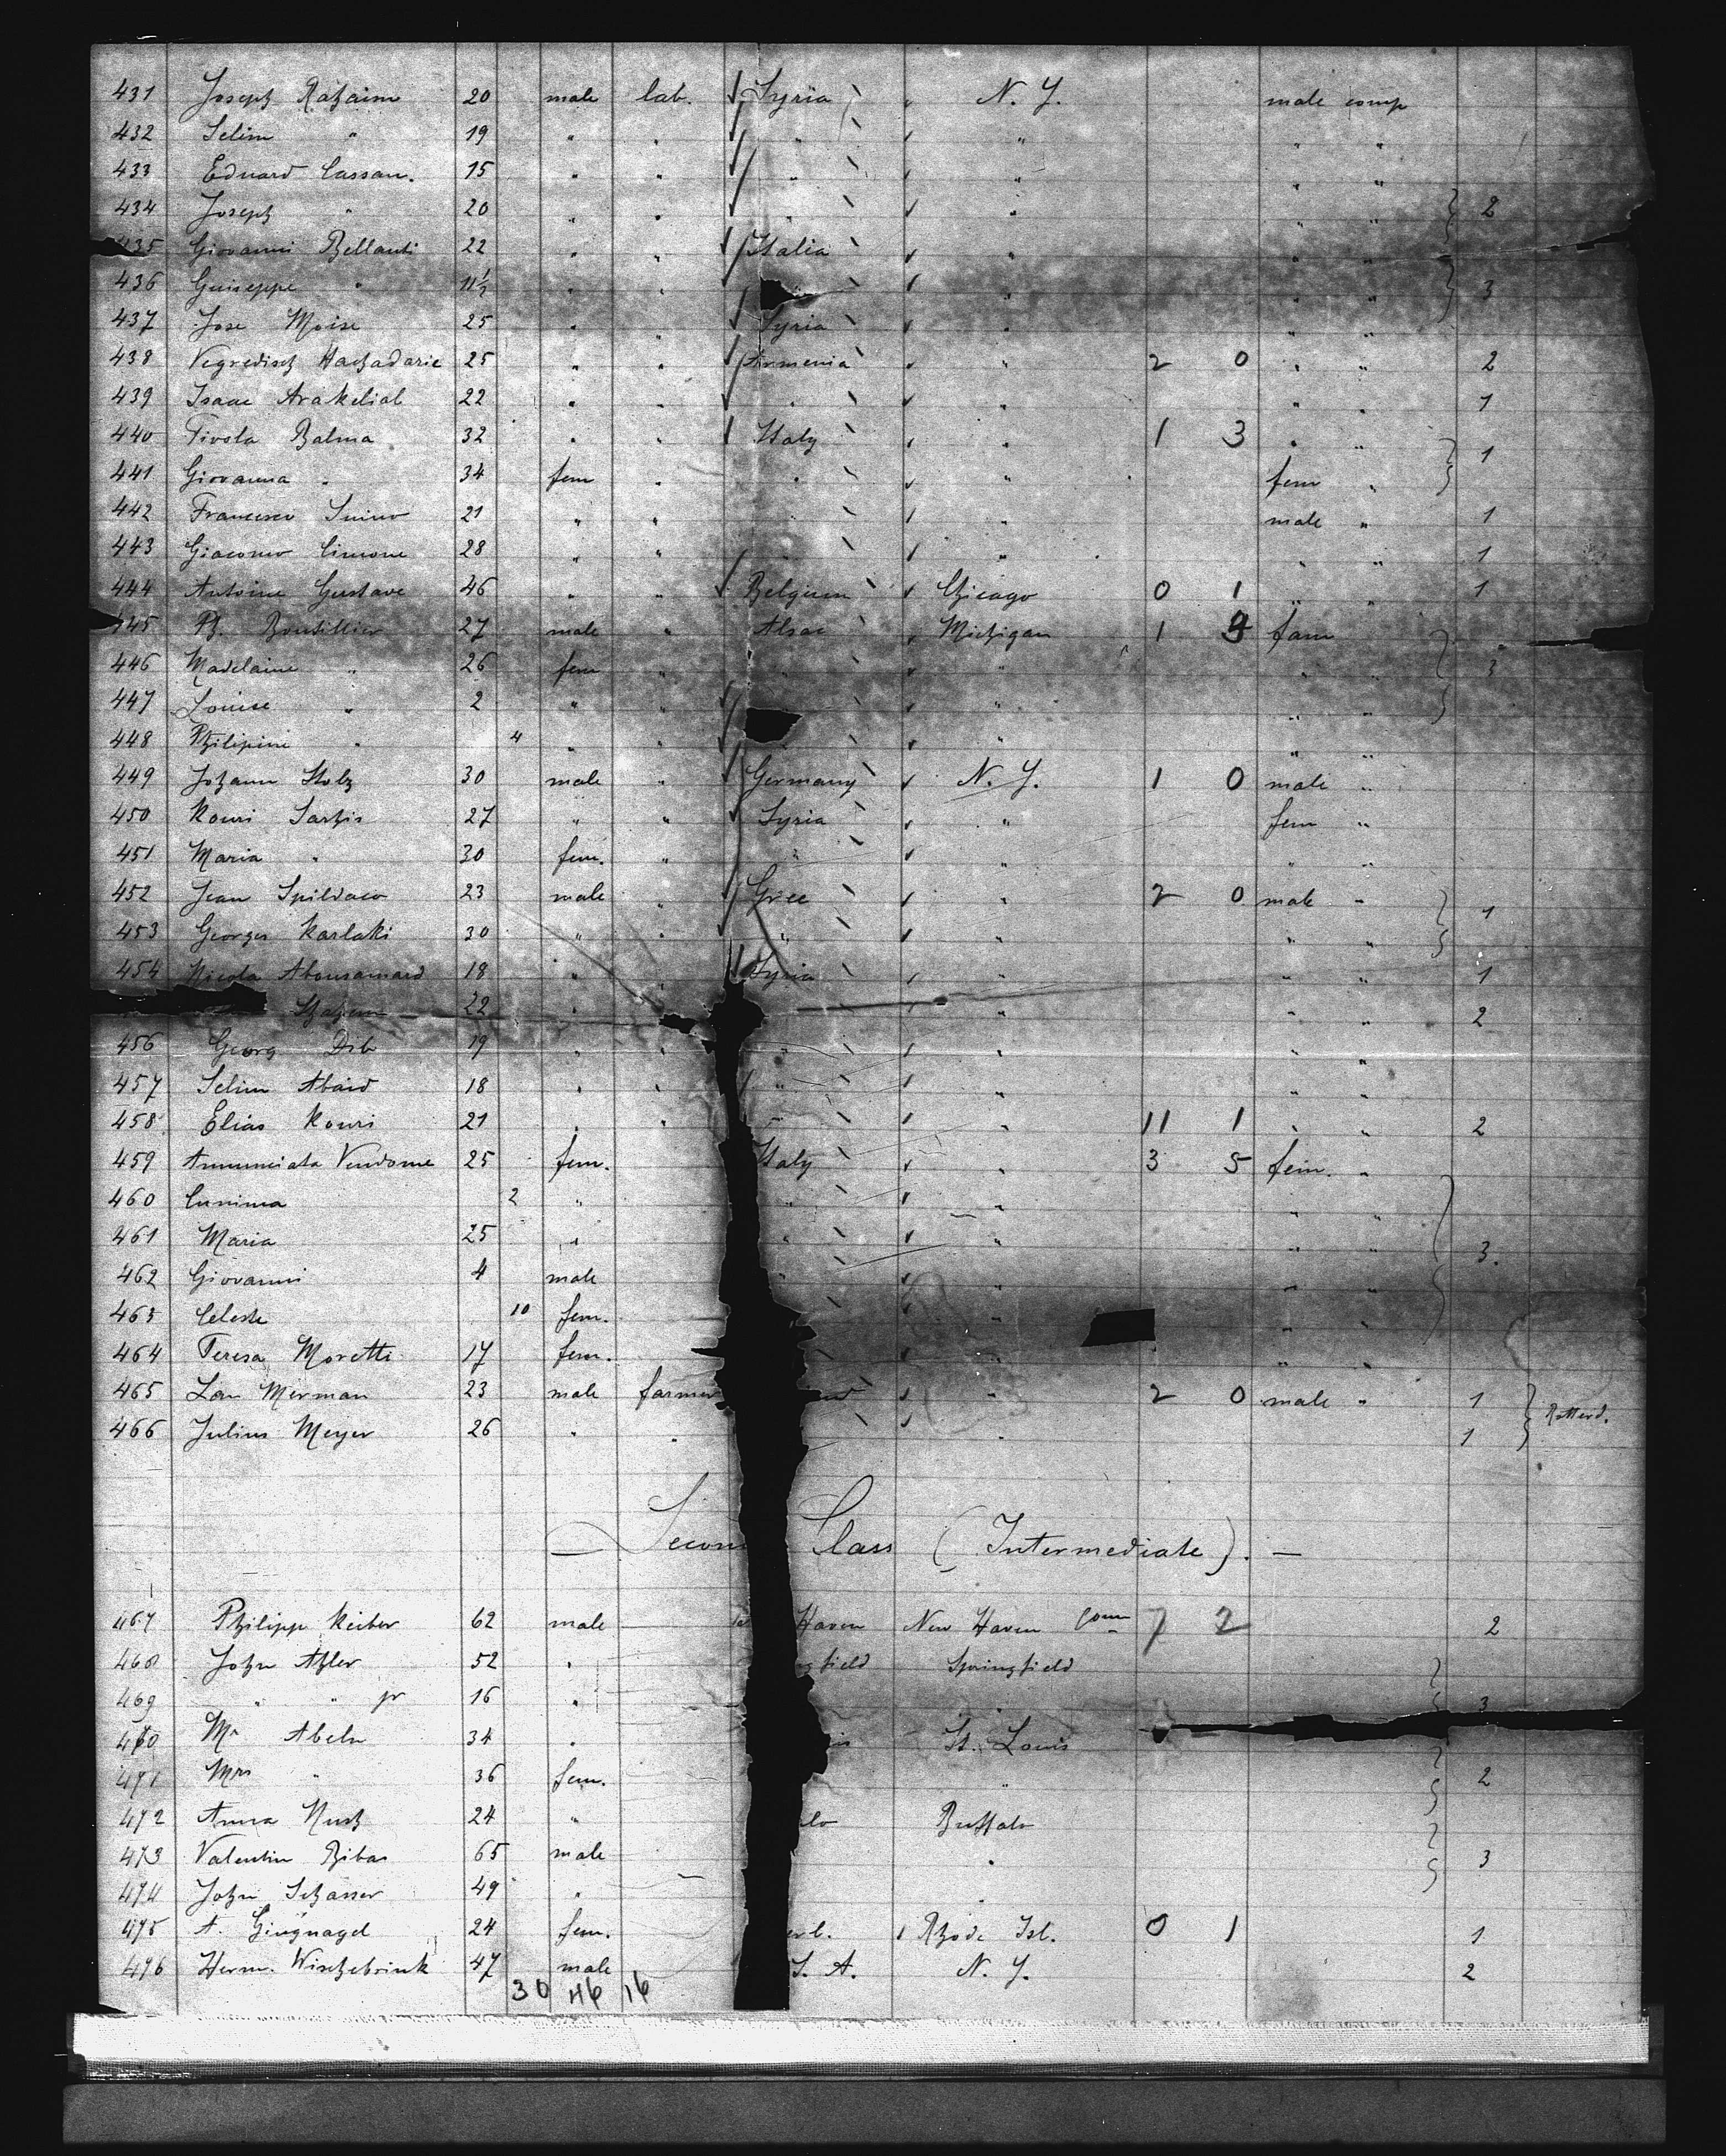 431 Joseph Rahaim 20 male lab. Syria N. Y. male comp
432 Selim " 19 " " " " " "
433 Eduard Cassan. 15 " " " " " "
434 Joseph " 20 " " " " " " 2
435 Giovanni Bellanti 22 " " Italia " " "
436 Guiseppe " 11½ " " " " " 3
437 Jose Moise 25 " " Syria " " "
438 Vegredisch Hachadarie 25 " " Armenia " 2 0 " " 2
439 Isaac Arakelial 22 " " " " " " 1
440 Tivola Balma 32 " " Italy " 1 3 " "
441 Giovanna " 34 fem " " " fem " 1
442 Francesco 21 " " " male " 1
443 Giacomo Cimone 28 " " " " " 1
444 Antoine Gustave 46 " " Belgium Chicago 0 1 " " 1
445 Boutillier 27 male " Alsac Michigan 1 fam
446 Madelaine " 26 fem " " " " " 3
447 Louise " 2 " " " " "
448 Philipine " 4 " " " " " "
449 Johann Stolz 30 male " Germany N. Y. 1 0 male "
450 Kouri Sarhis 27 " " Syria " fem "
451 Maria " 30 fem. " " " "
452 Jean Spildaco 23 male " Grec " 2 0 male " 1
453 Georges Karlaki 30 " " " " " "
454 Nicola Abousamard 18 " Syria " " " 1
Shahem 22 " " " " 2
456 Georg Deb 19 " " " " " "
457 Selim Abaid 18 " " " " " "
458 Elias Kouri 21 " " " " 11 1 " " 2
459 Annunciata Vendome 25 fem. Italy " 3 5 fem. "
460 Cunima 2 " " " " "
461 Maria 25 " " " " " 3.
462 Giovanni 4 male " " " "
463 Celeste 10 fem. " " "
464 Teresa Moretti 17 fem. " " "
465 Lan Merman 23 male farmer " 2 0 male " 1 Rotterd.
466 Julius Meyer 26 " " " 1
— Secon Class (Intermediate). —
467 Philipp Keiber 62 male Haven New Haven Conn 7 2 2
468 John Ahler 52 " gfield Springfield
469 " " jr 16 " " 3
470 Mr Abeln 34 " is St. Louis
471 Mrs " 36 fem. " 2
472 Anna Nush 24 " alo Buffalo
473 Valentin Bibas 65 male " 3
474 John Schasser 49 " "
475 A. Gingnagel 24 fem. erl. Rhode Isl. 0 1 1
476 Herm. Wischebrink 47 male S. A. N. Y. 2
30 46 16